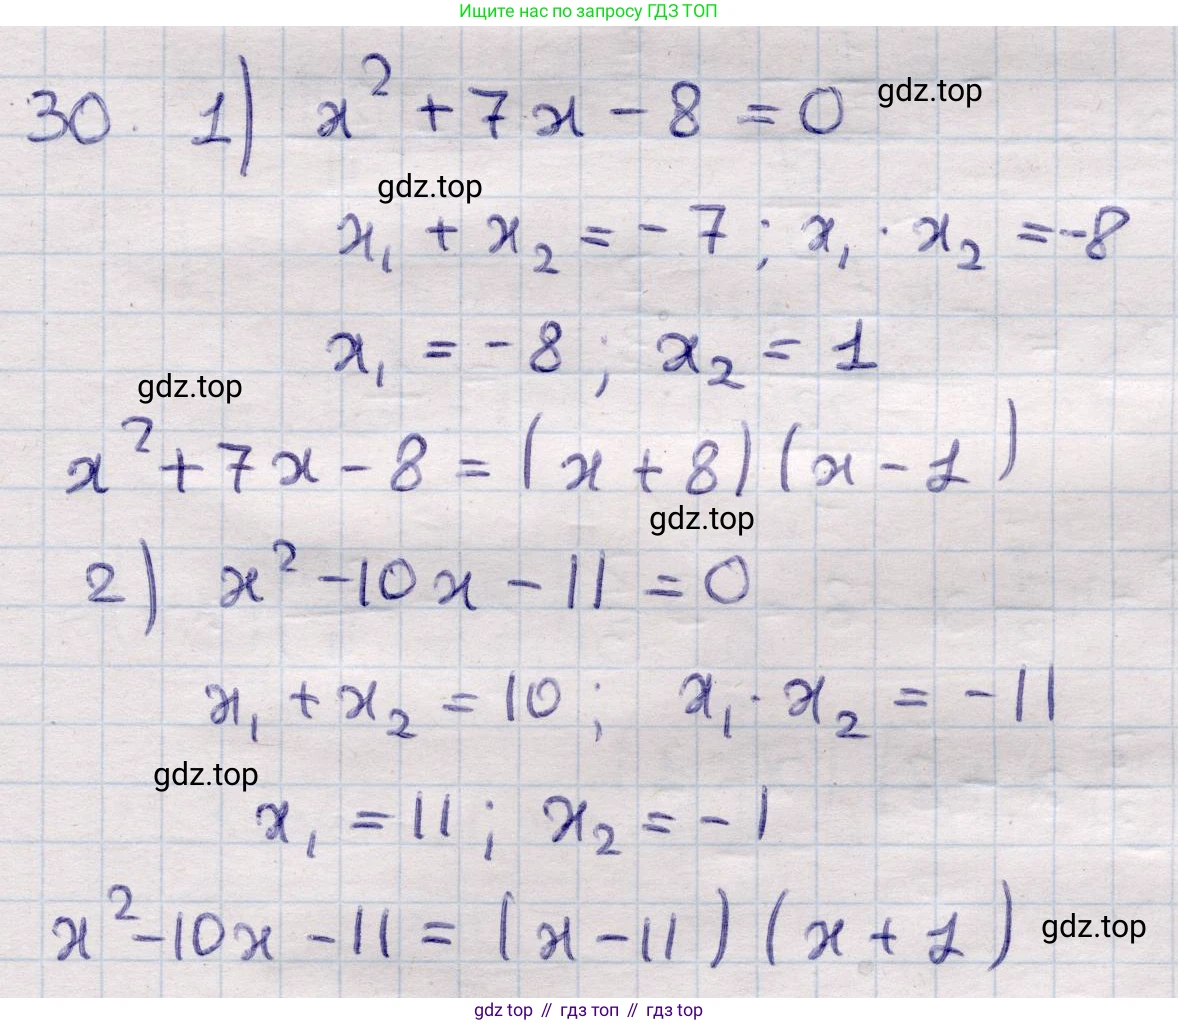 Ищите нас по запросу ГДЗ ТОП
30. 1) x² + 7x - 8 = 0 gdz.top
gdz.top
x₁ + x₂ = -7; x₁ · x₂ = -8
x₁ = -8; x₂ = 1
gdz.top
x² + 7x - 8 = (x + 8)(x - 1)
gdz.top
2) x² - 10x - 11 = 0
x₁ + x₂ = 10; x₁ · x₂ = -11
gdz.top
x₁ = 11; x₂ = -1
x² - 10x - 11 = (x - 11)(x + 1) gdz.top
gdz top // гдз топ // gdz top